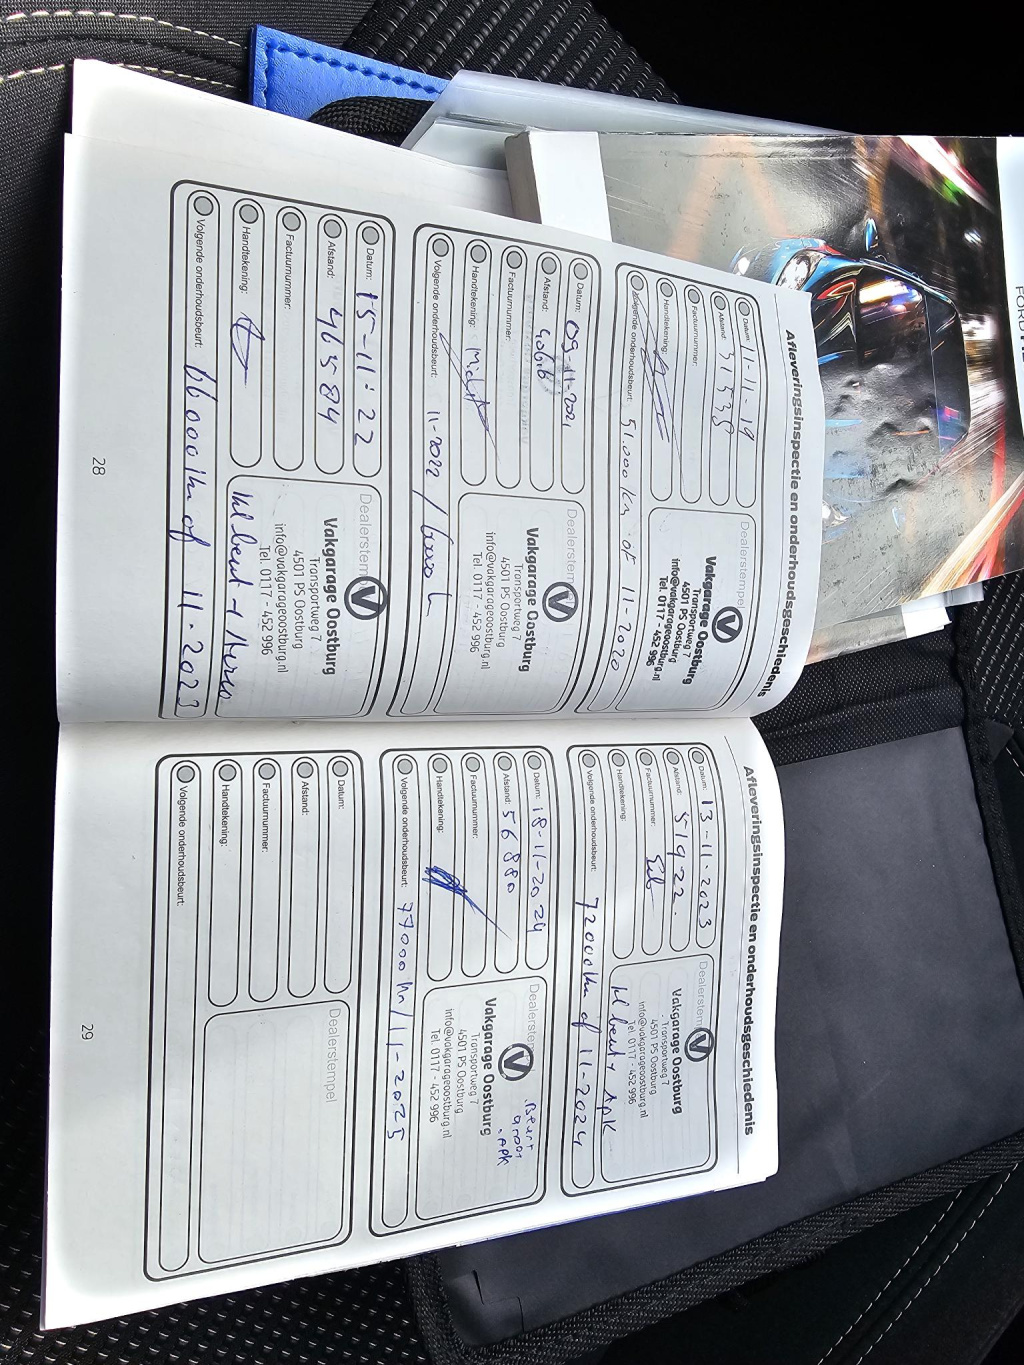 Afleveringsinspectie en onderhoudsgeschiedenis
Datum: 11-11-19
Afstand: 31538
Factuurnummer:
Handtekening:
Volgende onderhoudsbeurt: 51.000 km of 11-2020
Dealerstempel
Vakgarage Oostburg
Transportweg 7
4501 PS Oostburg
info@vakgarageoostburg.nl
Tel. 0117 - 452 996
Datum: 09-11-2021
Afstand:
Factuurnummer:
Handtekening:
Volgende onderhoudsbeurt: 11-2022 /
Dealerstempel
Vakgarage Oostburg
Transportweg 7
4501 PS Oostburg
info@vakgarageoostburg.nl
Tel. 0117 - 452 996
Datum: 15-11-22
Afstand: 46584
Factuurnummer:
Handtekening:
Volgende onderhoudsbeurt: 66000km of 11-2023
Dealerstempel
Vakgarage Oostburg
Transportweg 7
4501 PS Oostburg
info@vakgarageoostburg.nl
Tel. 0117 - 452 996
kl beurt +
28
Afleveringsinspectie en onderhoudsgeschiedenis
Datum: 13-11-2023
Afstand: 51922.
Factuurnummer:
Handtekening:
Volgende onderhoudsbeurt: 72000km of 11-2024
Dealerstempel
Vakgarage Oostburg
Transportweg 7
4501 PS Oostburg
info@vakgarageoostburg.nl
Tel. 0117 - 452 996
kl beurt + APK
Datum: 18-11-2024
Afstand: 56880
Factuurnummer:
Handtekening:
Volgende onderhoudsbeurt: 77000 km/11-2025
Dealerstempel
Vakgarage Oostburg
Transportweg 7
4501 PS Oostburg
info@vakgarageoostburg.nl
Tel. 0117 - 452 996
. Beurt
groot
. APK
Datum:
Afstand:
Factuurnummer:
Handtekening:
Volgende onderhoudsbeurt:
Dealerstempel
29